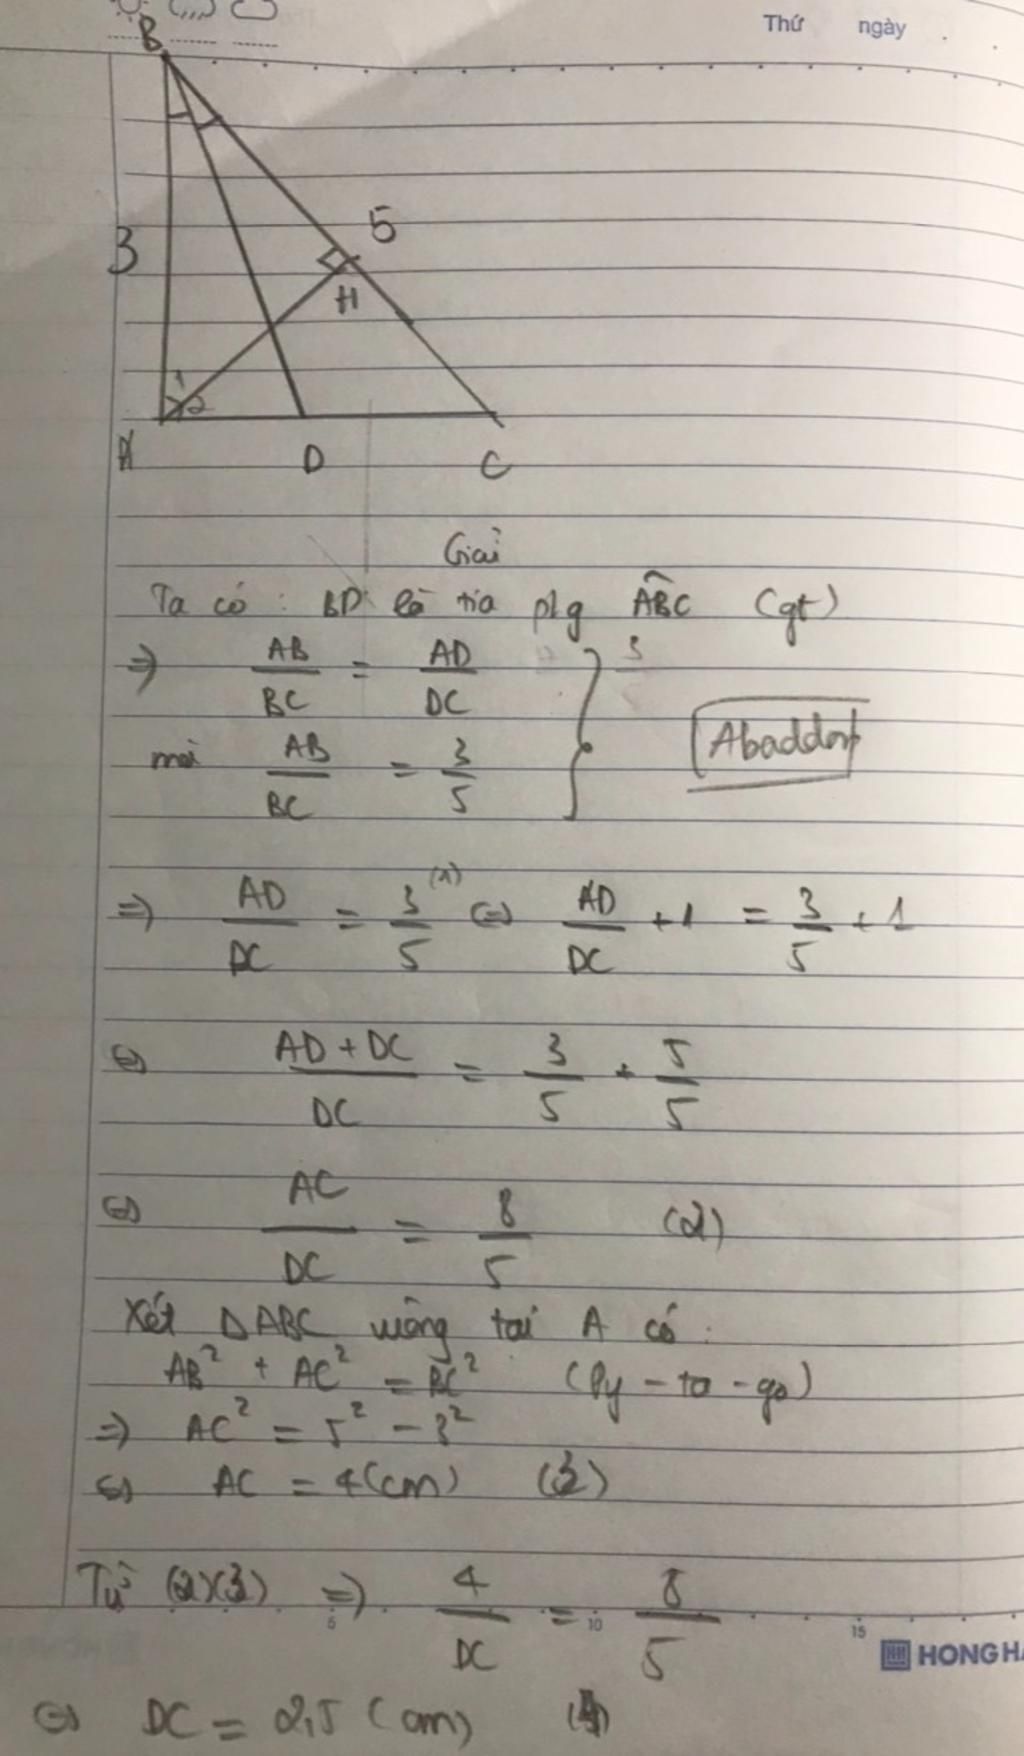 Thứ ngày
B
3
5
H
1
2
A D C
Giải
Ta có : BD là tia p/g ABC (gt)
=> AB/BC = AD/DC } 3
mà AB/BC = 3/5
Abaddon
=> AD/DC = 3/5 (1) <=> AD/DC + 1 = 3/5 + 1
<=> AD + DC/DC = 3/5 + 5/5
<=> AC/DC = 8/5 (2)
Xét ΔABC vuông tại A có :
AB² + AC² = BC² (Py-ta-go)
=> AC² = 5² - 3²
<=> AC = 4 (cm) (3)
Từ (2)(3) => 4/DC = 8/5
5 10 15
HONG HA
<=> DC = 2,5 (cm) (4)